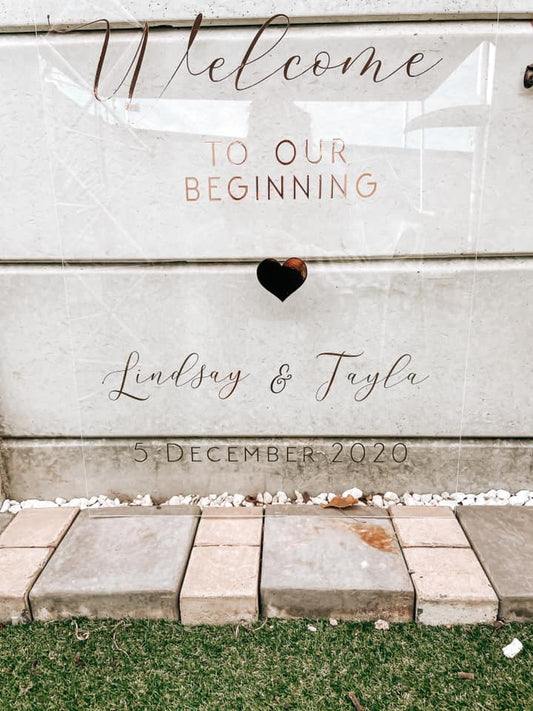 Welcome
TO OUR
BEGINNING
Lindsay & Tayla
5 DECEMBER 2020